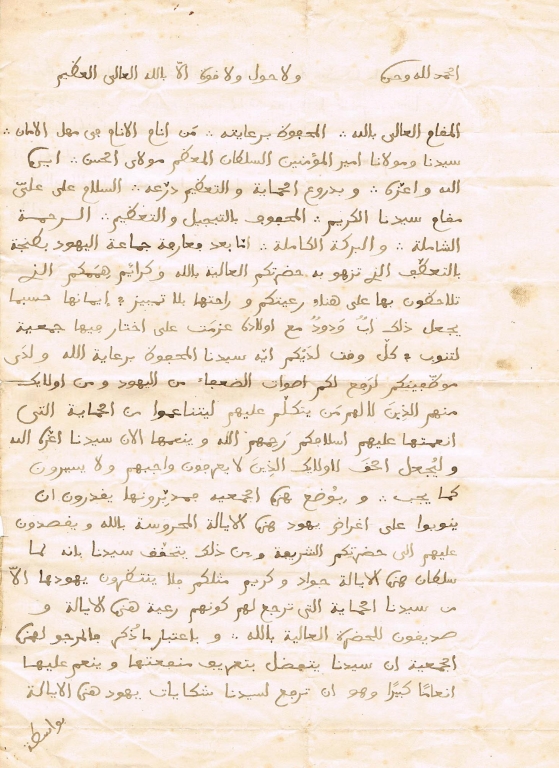 الحمد لله وحده ولا حول ولا قوة الّا بالله العالى العظيم
المقام العالى بالله ∴ المحفوظ برعايته ∴ مَن اقام الانام فى مهل الامان ∴
سيدنا ومولانا امير المؤمنين السلطان المعظم مولاى الحسن ∴ ايده
الله واعزّه ∴ و بدروع الحماية والتعظيم درّعه ∴ السلام على علىّ
مقام سيدنا الكريم ∴ المحفوف بالتبجيل والتعظيم ∴ الرحمة
الشاملة ∴ والبركة الكاملة ∴ امّا بعد جماعة اليهود بطنجة
بالتعطّف الذى تزهو به حضرتكم العالية بالله وكرائم هِمَمكم التى
تلاحظون بها على هناء رعيتكم و راحتها بلا تمييز إيمانها حسبما
يجعل ذلك ابٌ وَدودٌ مع اولاده عزمَت على اختار فيها جمعية
لتنوب كلّ وقت لَدَيْكم ايّه سيدنا المحفوظ برعاية الله و لدى
موظّفينكم لرَفع لكم اصوات الضعفاء من اليهود و من اولائك
منهم الذِينَ لا لهم مَن يتكلّم عليهم ليتناعموا من الحماية التى
انعمتها عليهم اسلافكم رَحِمهم الله و ينعمها الآن سيدنا اعزّه الله
و ليُجعل الحقّ لاولايك الذِينَ لا يعرفون واجبهم ولا يسيرون
كما يجب ∴ و بوُضع هذه الجمعية فمدبّرونها يقدرون ان
ينوبوا على اغراض يهود هذه الايالة المحروسة بالله و يقصدون
عليهم الى حضرتكم الشريفة و من ذلك يتحقّق سيدنا بانه لما
سلطان هذه الايالة جواد و كريم مثلكم فلا ينتظرون يهودها الّا
من سيدنا الحماية التى ترجع لهم كونهم رعية هذه الايالة و
صديقون للحضرة العالية بالله ∴ و باعتبار ما ذُكر فالمرجو لهذه
الجمعية ان سيدنا يتفضل بتعريف منفعتها و ينعم عليها
انعامًا كبيرًا وهو ان ترفع لسيدنا شكايات يهود هذه الايالة
بواسطة